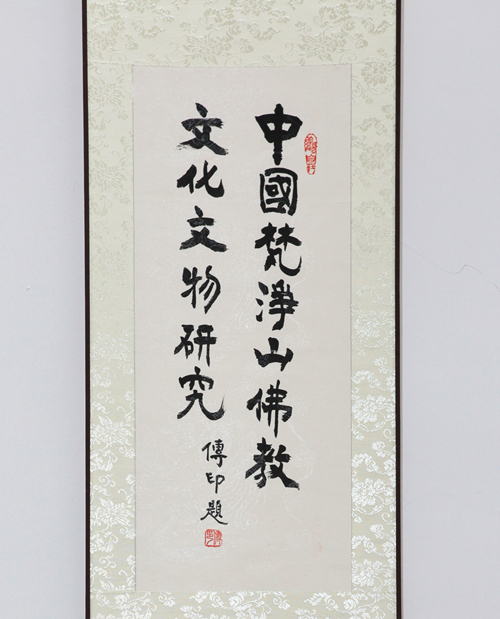 中國梵淨山佛教
文化文物研究
傳印題